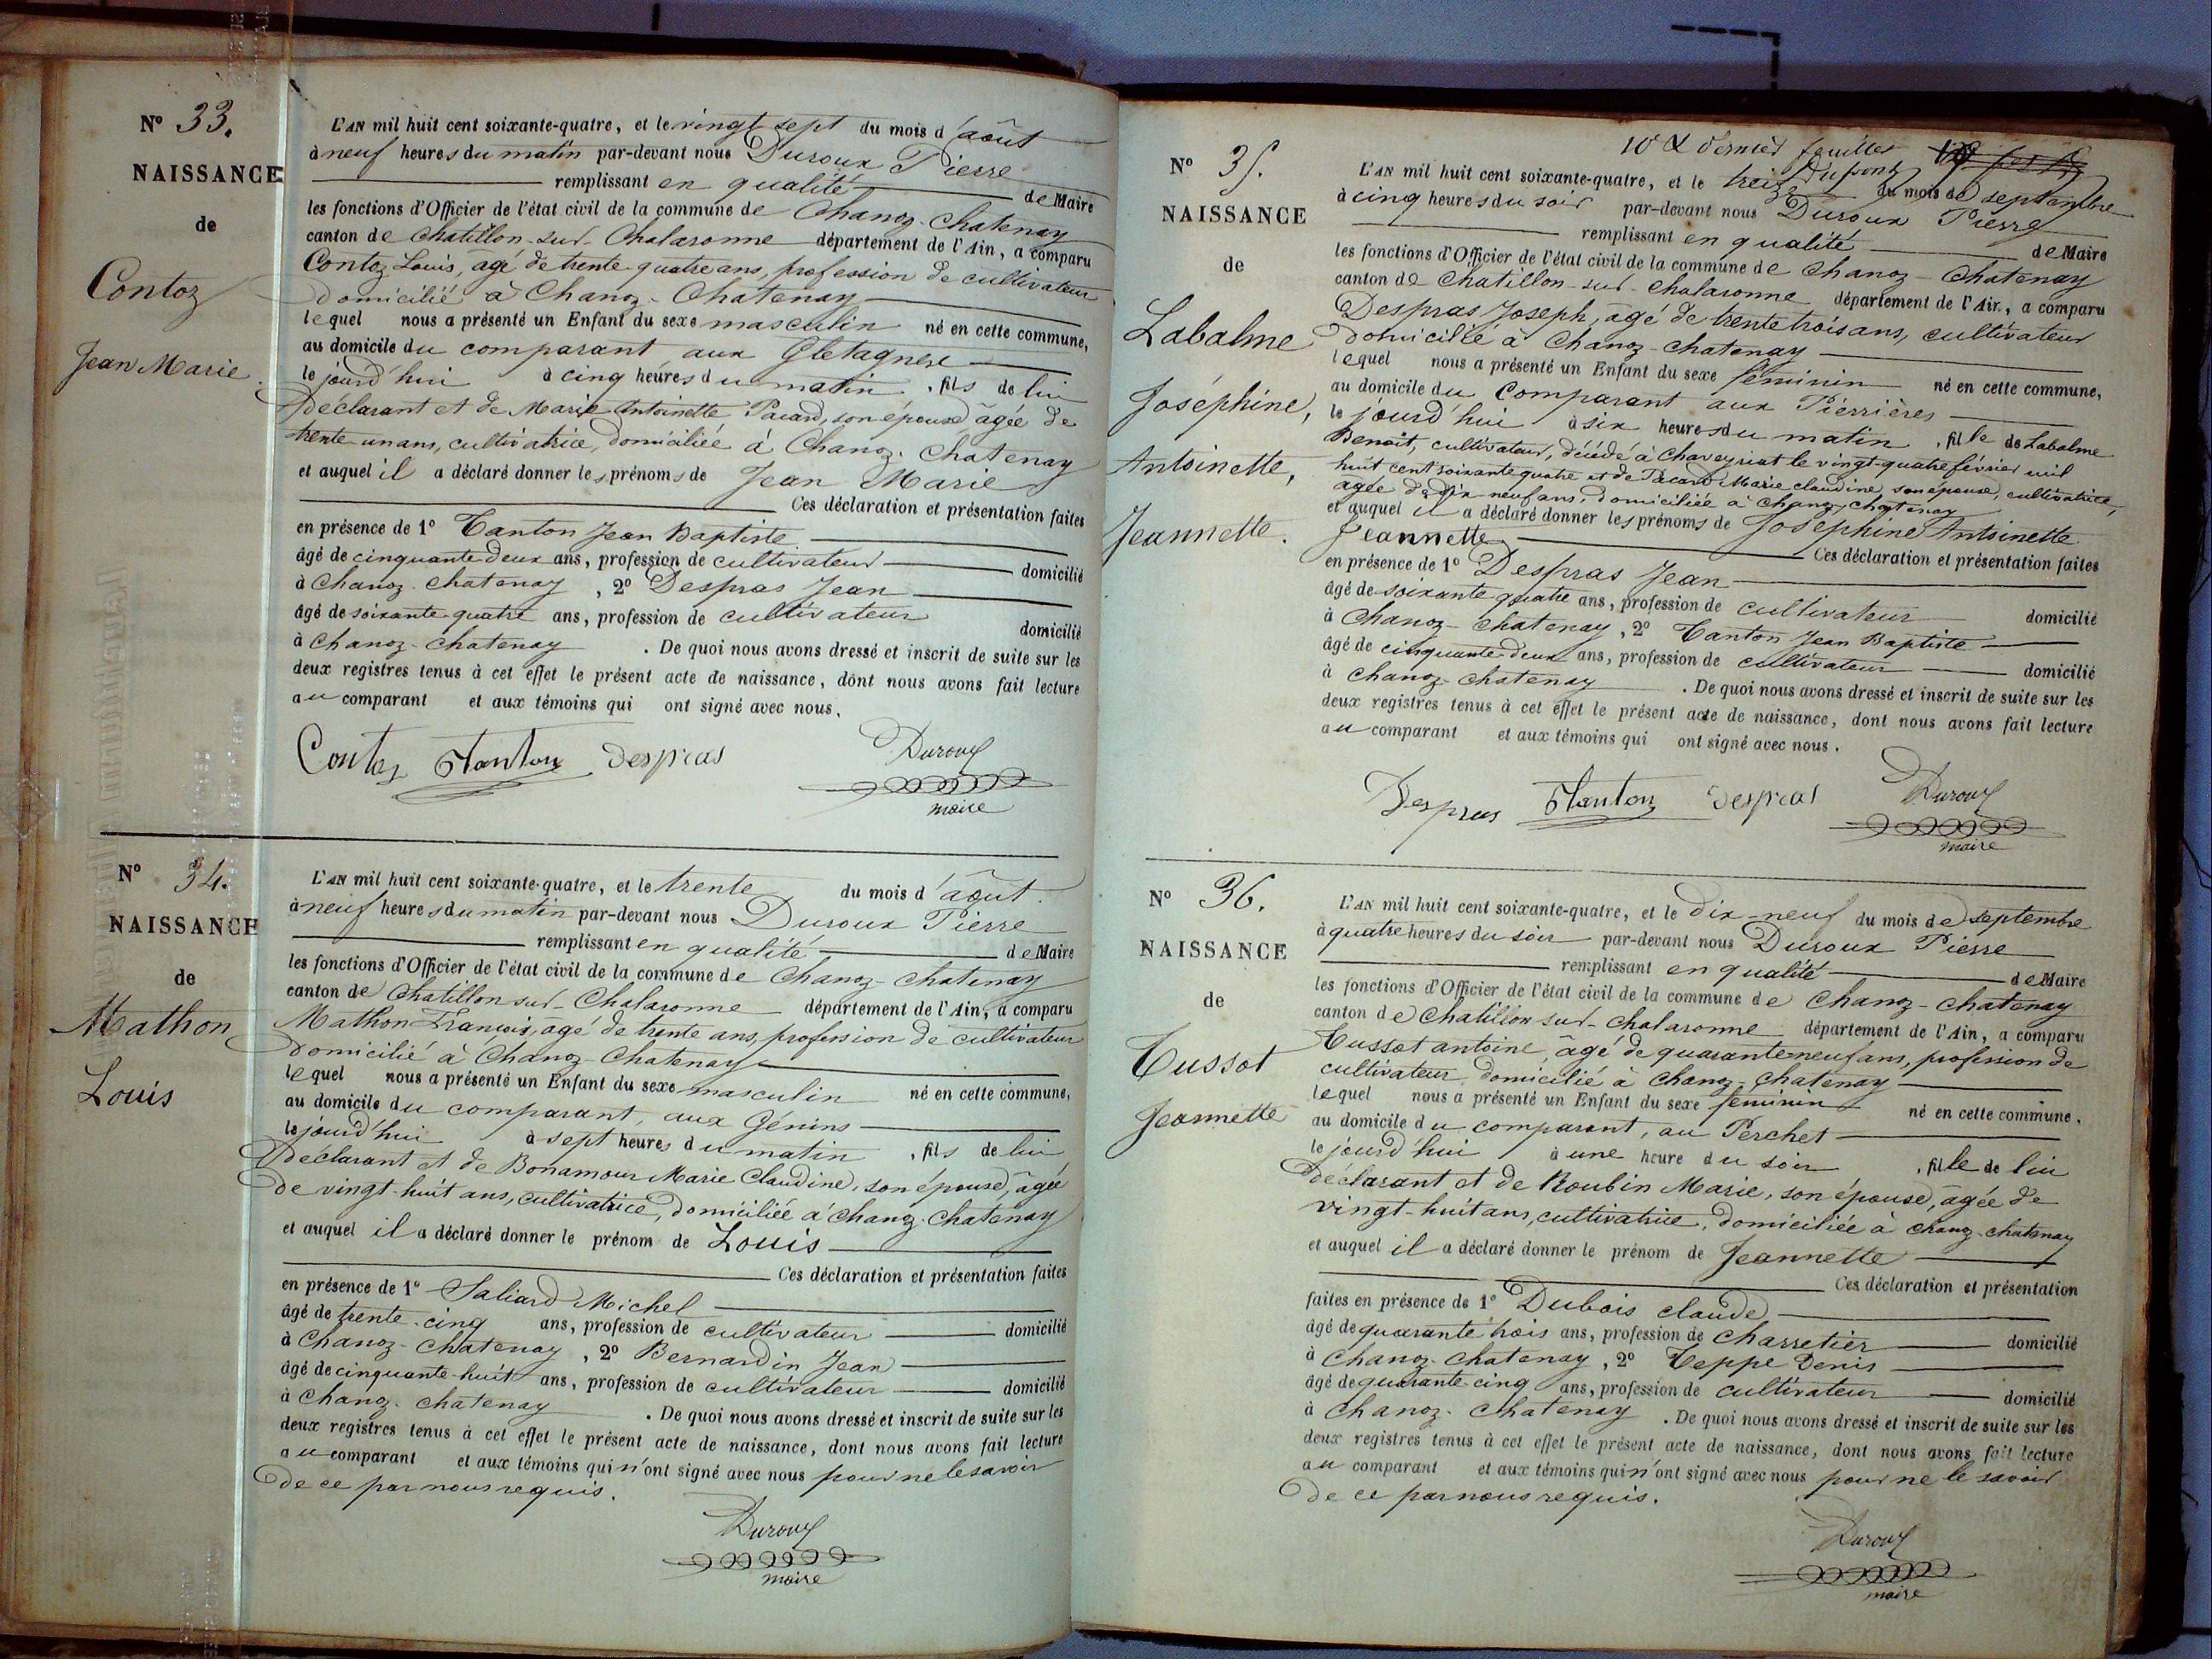 N° 33.
NAISSANCE
de
Contoz
Jean Marie.
L'AN mil huit cent soixante-quatre, et le vingt sept du mois d'août
à neuf heures du matin par-devant nous Duroux Pierre
remplissant en qualité de Maire
les fonctions d'Officier de l'état civil de la commune de Chanoz-Chatenay
canton de Chatillon-sur-Chalaronne département de l'Ain, a comparu
Contoz Louis, âgé de trente-quatre ans, profession de cultivateur
domicilié à Chanoz-Chatenay
lequel nous a présenté un Enfant du sexe masculin né en cette commune,
au domicile du comparant aux
le jourd'hui à cinq heures du matin, fils de lui
déclarant et de Marie Antoinette Pacard, son épouse âgée de
trente-un ans, cultivatrice, domiciliée à Chanoz-Chatenay
et auquel il a déclaré donner les prénoms de Jean Marie
Ces déclaration et présentation faites
en présence de 1° Tanton Jean Baptiste
âgé de cinquante-deux ans, profession de cultivateur domicilié
à Chanoz-Chatenay, 2° Despras Jean
âgé de soixante-quatre ans, profession de cultivateur domicilié
à Chanoz-Chatenay. De quoi nous avons dressé et inscrit de suite sur les
deux registres tenus à cet effet le présent acte de naissance, dont nous avons fait lecture
au comparant et aux témoins qui ont signé avec nous.
Contoz JTanton Despras Duroux
maire
N° 34.
NAISSANCE
de
Mathon
Louis
L'AN mil huit cent soixante-quatre, et le trente du mois d'août.
à neuf heures du matin par-devant nous Duroux Pierre
remplissant en qualité de Maire
les fonctions d'Officier de l'état civil de la commune de Chanoz-Chatenay
canton de Chatillon-sur-Chalaronne département de l'Ain, a comparu
Mathon François, âgé de trente ans, profession de cultivateur
domicilié à Chanoz-Chatenay
lequel nous a présenté un Enfant du sexe masculin né en cette commune,
au domicile du comparant, aux Génins
le jourd'hui à sept heures du matin, fils de lui
déclarant et de Bonamour Marie Claudine, son épouse, âgée
de vingt-huit ans, cultivatrice, domiciliée à Chanoz-Chatenay
et auquel il a déclaré donner le prénom de Louis
Ces déclaration et présentation faites
en présence de 1° Saliard Michel
âgé de trente-cinq ans, profession de cultivateur domicilié
à Chanoz-Chatenay, 2° Bernardin Jean
âgé de cinquante-huit ans, profession de cultivateur domicilié
à Chanoz-Chatenay. De quoi nous avons dressé et inscrit de suite sur les
deux registres tenus à cet effet le présent acte de naissance, dont nous avons fait lecture
au comparant et aux témoins qui n'ont signé avec nous pour ne le savoir
de ce par nous requis.
Duroux
maire
10e & dernier feuillet
N° 35.
NAISSANCE
de
Labalme
Joséphine,
Antoinette,
Jeannette.
L'AN mil huit cent soixante-quatre, et le treize du mois de septembre
à cinq heures du soir par-devant nous Duroux Pierre
remplissant en qualité de Maire
les fonctions d'Officier de l'état civil de la commune de Chanoz-Chatenay
canton de Chatillon-sur-Chalaronne département de l'Ain, a comparu
Despras Joseph, âgé de trente trois ans, cultivateur
domicilié à Chanoz-Chatenay
lequel nous a présenté un Enfant du sexe féminin né en cette commune,
au domicile du Comparant aux Pierrières
le jourd'hui à six heures du matin, fille de Labalme
Benoit, cultivateur, décédé à Chaveyriat le vingt-quatre février mil
huit cent soixante quatre et de Pacard Marie claudine son épouse, cultivatrice,
âgée de dix-neuf ans, domiciliée à Chanoz-Chatenay
et auquel il a déclaré donner les prénoms de Joséphine Antoinette
Jeannette Ces déclaration et présentation faites
en présence de 1° Despras Jean
âgé de soixante quatre ans, profession de cultivateur domicilié
à Chanoz-Chatenay, 2° Tanton Jean Baptiste
âgé de cinquante-deux ans, profession de cultivateur domicilié
à Chanoz-Chatenay. De quoi nous avons dressé et inscrit de suite sur les
deux registres tenus à cet effet le présent acte de naissance, dont nous avons fait lecture
au comparant et aux témoins qui ont signé avec nous.
Despras JTanton Despras Duroux
maire
N° 36.
NAISSANCE
de
Tussot
Jeannette
L'AN mil huit cent soixante-quatre, et le dix-neuf du mois de septembre
à quatre heures du soir par-devant nous Duroux Pierre
remplissant en qualité de Maire
les fonctions d'Officier de l'état civil de la commune de Chanoz-Chatenay
canton de Chatillon-sur-Chalaronne département de l'Ain, a comparu
Tussot antoine, âgé de quarante-neuf ans, profession de
cultivateur, domicilié à Chanoz-Chatenay
lequel nous a présenté un Enfant du sexe féminin né en cette commune.
au domicile du comparant, au Perchet
le jourd'hui à une heure du soir, fille de lui
déclarant et de Roubin Marie, son épouse, âgée de
vingt-huit ans, cultivatrice, domiciliée à Chanoz-Chatenay
et auquel il a déclaré donner le prénom de Jeannette
Ces déclaration et présentation
faites en présence de 1° Dubois claude
âgé de quarante trois ans, profession de Charretier domicilié
à Chanoz-Chatenay, 2° Teppe Denis
âgé de quarante-cinq ans, profession de cultivateur domicilié
à Chanoz-Chatenay. De quoi nous avons dressé et inscrit de suite sur les
deux registres tenus à cet effet le présent acte de naissance, dont nous avons fait lecture
au comparant et aux témoins qui n'ont signé avec nous pour ne le savoir
de ce par nous requis.
Duroux
maire